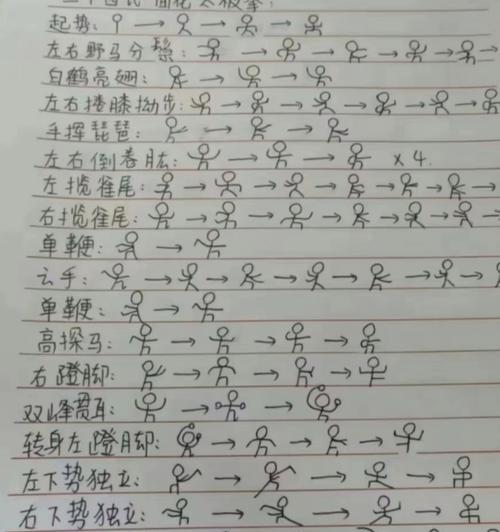 二十四式简化太极拳:
起势:
左右野马分鬃:
白鹤亮翅:
左右搂膝拗步:
手挥琵琶:
左右倒卷肱: ×4.
左揽雀尾:
右揽雀尾:
单鞭:
云手:
单鞭:
高探马:
右蹬脚:
双峰贯耳:
转身左蹬脚:
左下势独立:
右下势独立: